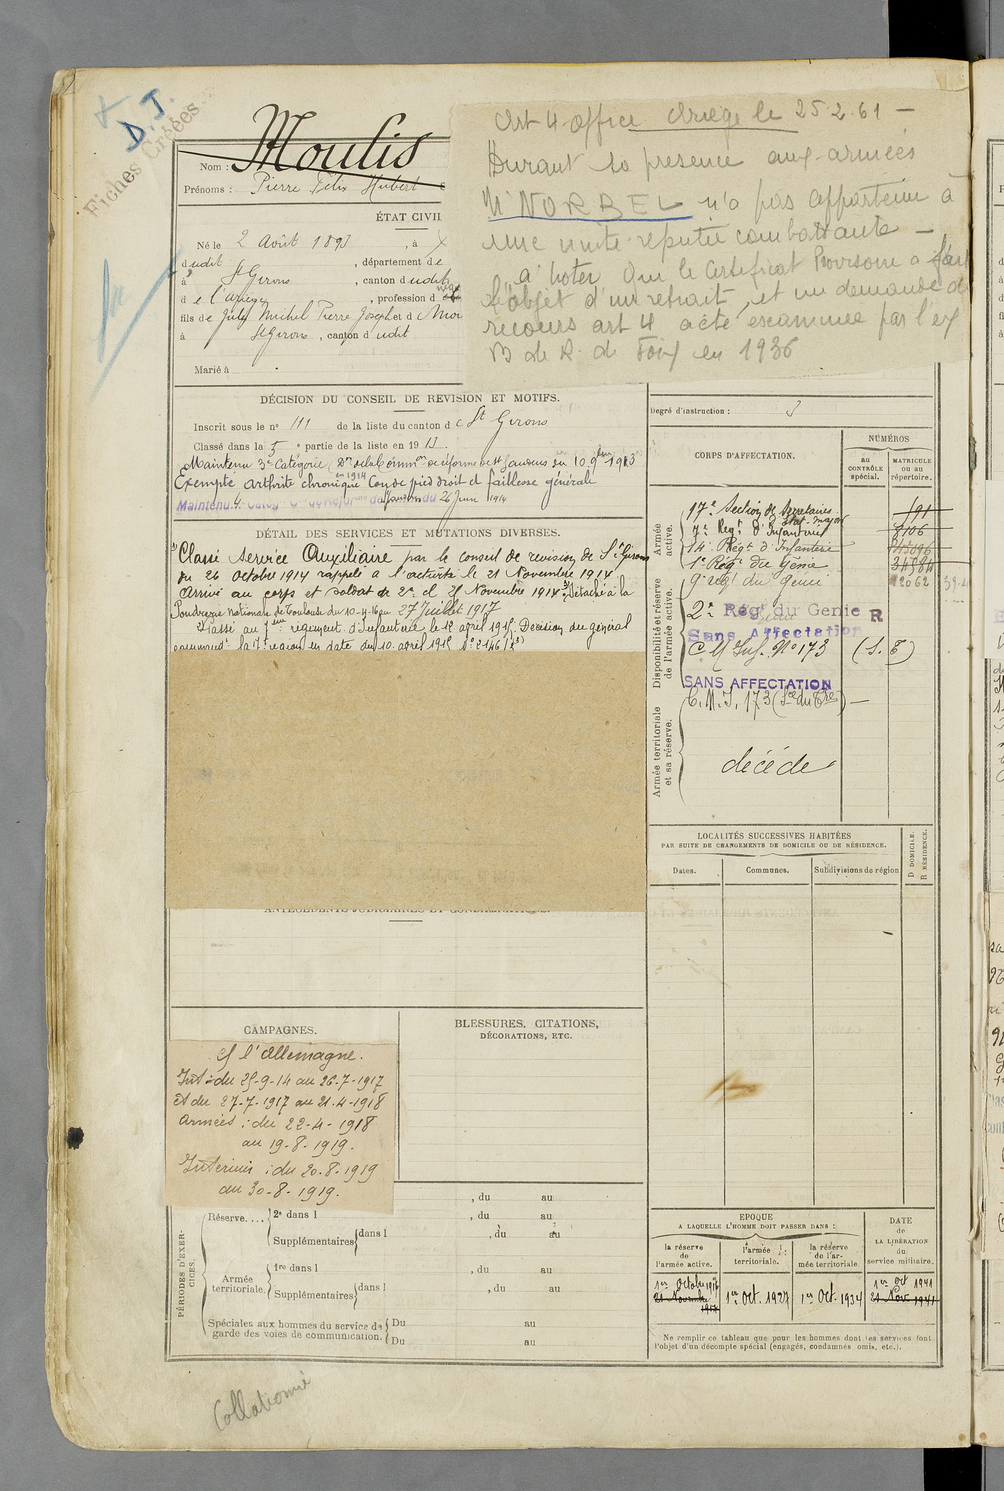 D. J.
Fiches Créées
Nom : Moulis
Prénoms : Pierre Félix Hubert
ÉTAT CIVIL
Né le 2 Août 1893, à
dudit, département de
à St Girons, canton dudit
de l'ariège, profession d
fils de Michel Pierre Joseph et d
à St Girons, canton dudit
Marié à
Art 4 Office Ariège le 25.2.61 —
Durant sa presence aux armées
M NORBEL n'a pas appartenu à
une unité réputée combattante —
à noter que le certificat Provisoire a fait
l'objet d'un retrait, et un demande de
recours art 4 acte examinée par l'ex
B de R. de Foix en 1936
DÉCISION DU CONSEIL DE REVISION ET MOTIFS.
Inscrit sous le n° 111 de la liste du canton de St Girons
Classé dans la 5e partie de la liste en 1913.
Maintenu 3e Catégorie
Exempté arthrite chronique en 1914 Cou de pied droit et faiblesse générale
26 Juin 1914
DÉTAIL DES SERVICES ET MUTATIONS DIVERSES.
Classé Service Auxiliaire par le conseil de revision de St Girons
du 26 octobre 1914 rappelé à l'activité le 21 Novembre 1914
Arrivé au corps et soldat de 2e cl 21 Novembre 1914 Détaché à la
Poudrerie Nationale de Toulouse du 10-4-16 au 27 Juillet 1917
Passé au 7eme régiment d'Infanterie le 12 avril 1915. Décision du général
command. la 17e region en date du 10 avril 1915 N° 2146
ANTÉCÉDENTS JUDICIAIRES ET CONDAMNATIONS.
CAMPAGNES.
c/ l'Allemagne.
Int : du 25-9-14 au 26-7-1917
et du 27-7-1917 au 21-4-1918
armées : du 22-4-1918
au 19-8-1919.
Intérieur : du 20-8-1919
au 30-8-1919.
BLESSURES, CITATIONS,
DÉCORATIONS, ETC.
PÉRIODES D'EXERCICES.
, du au
Réserve.... 2e dans l , du au
Supplémentaires dans l , du au
Armée territoriale. 1re dans l , du au
Supplémentaires dans l , du au
Spéciales aux hommes du service de garde des voies de communication. Du au
Du au
Degré d'instruction : 3
CORPS D'AFFECTATION.
NUMÉROS
au CONTRÔLE spécial.
MATRICULE ou au répertoire.
Armée active.
17e Section de Secretaires Etat-major 191
7e Regt d'Infanterie 9106
14e Régt d'Infanterie
1er Régt du Génie 34984
Disponibilité et réserve de l'armée active.
9e régt du génie 12062
2e Rég. du Genie R
Sans Affectation
C M Inf. N° 173 (S. E)
SANS AFFECTATION
Armée territoriale et sa réserve.
C. M. I. 173
décédé
LOCALITÉS SUCCESSIVES HABITÉES
PAR SUITE DE CHANGEMENTS DE DOMICILE OU DE RÉSIDENCE.
Dates. Communes. Subdivisions de région
D DOMICILE.
R RÉSIDENCE.
EPOQUE
A LAQUELLE L'HOMME DOIT PASSER DANS :
DATE DE LA LIBÉRATION du service militaire.
la réserve de l'armée active.
l'armée territoriale.
la réserve de l'armée territoriale
1er Octobre 1917
21 Novembre 1917
1er Oct. 1927
1er Oct. 1934
1er Oct 1941
21 Nov. 1941
Ne remplir ce tableau que pour les hommes dont les services font
l'objet d'un décompte spécial (engagés, condamnés omis, etc.).
Collationné